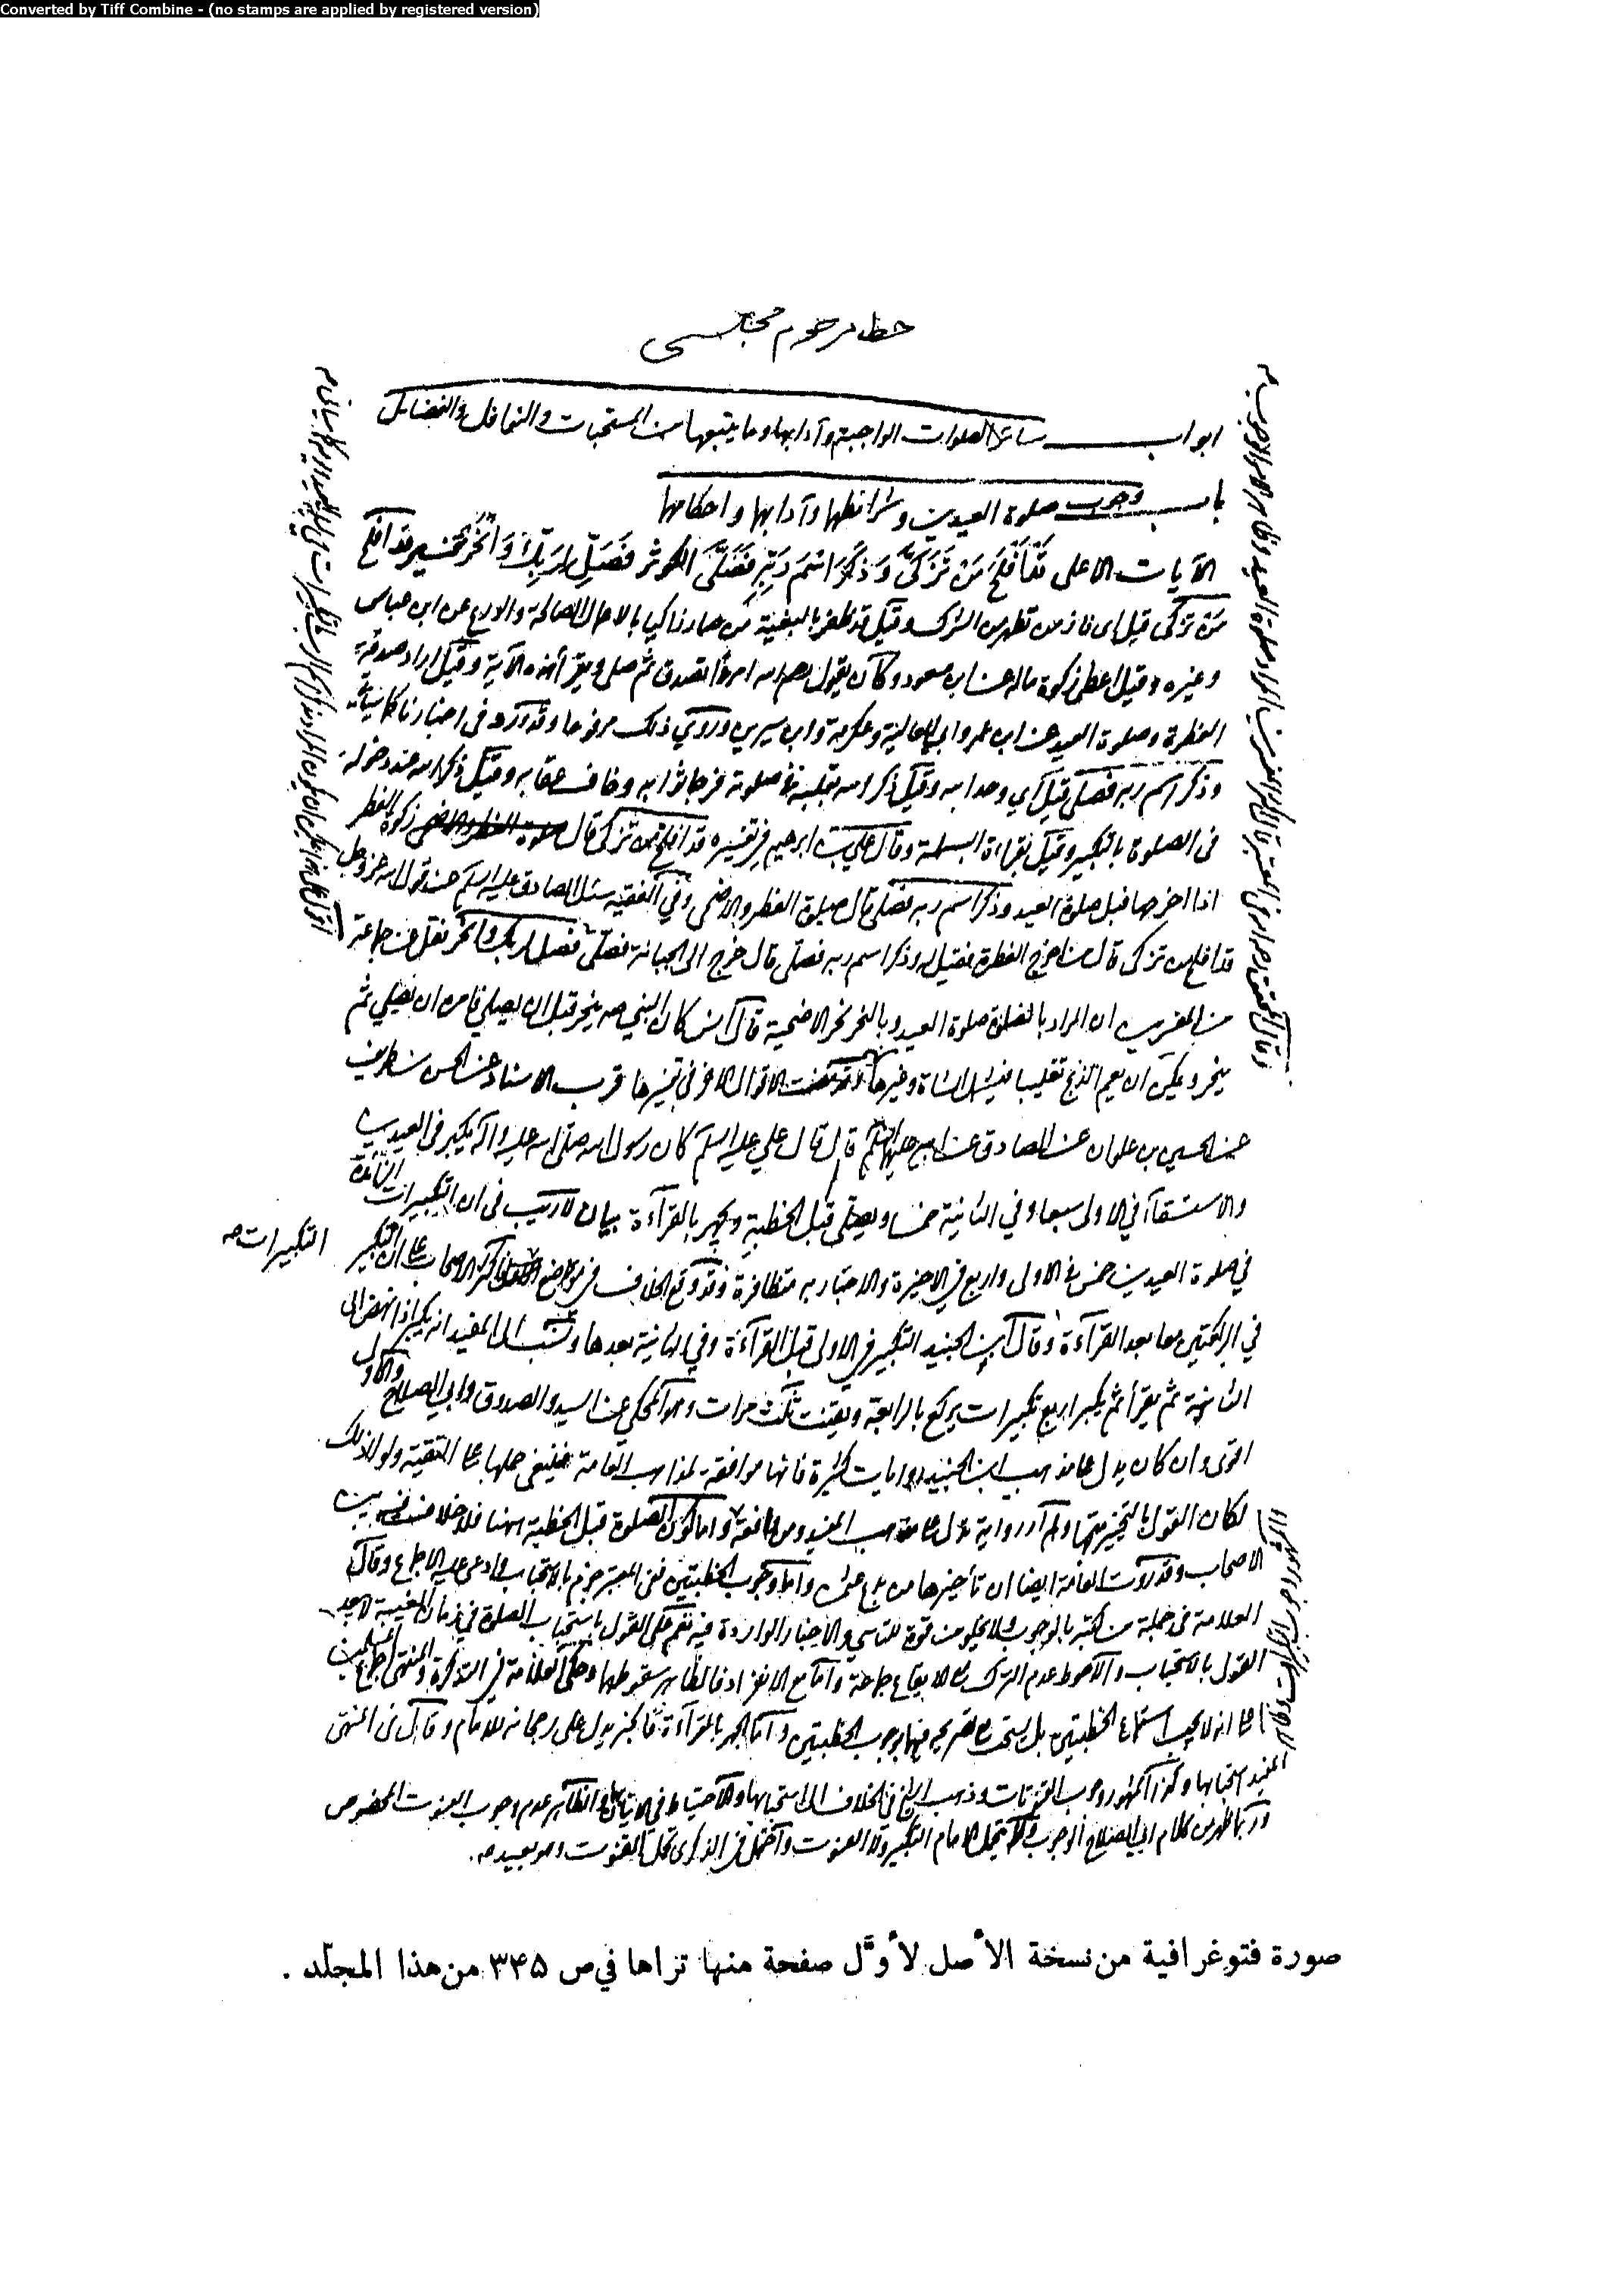 Converted by Tiff Combine - (no stamps are applied by registered version)
خط مرحوم مجلسی
ابواب سائر الصلوات الواجبة وآدابها وما يتبعها من المستحبات والنوافل والفضايل
باب وجوب صلوة العيدين وشرائطها وآدابها واحكامها
الآيات الاعلى قَدْ أَفْلَحَ مَنْ تَزَكَّى وَذَكَرَ اسْمَ رَبِّهِ فَصَلَّى الكوثر فَصَلِّ لِرَبِّكَ وَانْحَرْ تفسير قد افلح
من تزكى قيل اى فاز من تطهر من الشرك وقيل قد ظفر بالبغية من صار زاكيا بالاعمال الصالحة والورع عن ابن عباس
وغيره وقيل اعطى زكوة ماله عن ابن مسعود وكان يقول رحم الله امرءا تصدق ثم صلى ويقرأ هذه الآية وقيل اراد صدقة
الفطرة وصلوة العيد عن ابن عمر وابي العالية وعكرمة وابن سيرين وروي ذلك مرفوعا وقد ورد في اخبارنا كما سيأتي
وذكر اسم ربه فصلى قيل اي وحد الله وقيل ذكر الله بقلبه في صلوته فرجا ثوابه وخاف عقابه وقيل ذكر الله عند دخوله
فى الصلوة بالتكبير وقيل بقراءة البسملة وقال علي بن ابرهيم في تفسيره قد افلح من تزكى قال زكوة الفطر
اذا اخرجها قبل صلوة العيد وذكر اسم ربه فصلى قال صلوة الفطر والاضحى وفي الفقيه سئل الصادق عليه السلم عن قول الله عز وجل
قد افلح من تزكى قال من اخرج الفطرة فقيل له وذكر اسم ربه فصلى قال خرج الى الجبانة فصلى فصل لربك وانحر نقل عن جماعة
من المفسرين ان المراد بالصلوة صلوة العيد وبالنحر نحر الاضحية قال انس كان النبي صه ينحر قبل ان يصلي فامر ان يصلي ثم
ينحر ويمكن ان يعم الذبح تغليبا فيشمل الشاة وغيرها قرب الاسناد عن الحسن بن ظريف
عن الحسين بن علوان عن الصادق عن ابيه عليهما السلم قال قال علي عليه السلم كان رسول الله صلى الله عليه وآله يكبر في العيدين
والاستسقاء في الاولى سبعا وفي الثانية خمسا ويصلى قبل الخطبة ويجهر بالقراءة بيان لا ريب في ان التكبيرات الزائدة
في صلوة العيدين خمس في الاولى واربع في الاخيرة والاخبار به متظافرة وقد وقع الخلاف في مواضع فاكثر الاصحاب على ان التكبير
التكبيرات صه
في الركعتين معا بعد القراءة وقال ابن الجنيد التكبير في الاولى قبل القراءة وفي الثانية بعدها ونسب الى المفيد انه يكبر اذا نهض الى
الثانية ثم يقرأ ثم يكبر اربع تكبيرات يركع بالرابعة ويقنت ثلث مرات وهو المحكي عن السيد والصدوق وابي الصلاح والاول
اقوى وان كان يدل على مذهب ابن الجنيد روايات كثيرة فانها موافقة لمذاهب العامة فينبغي حملها على التقية ولولا ذلك
لكان القول بالتخيير متجها ولم أر رواية تدل على مذهب المفيد ومن وافقه واما كون الصلوة قبل الخطبة ههنا فلا خلاف فيه بين
الاصحاب وقد روت العامة ايضا ان تأخيرها من بدع عثمن وأما وجوب الخطبتين ففي المعتبر جزم بالاستحباب وادعى عليه الاجماع وقال
العلامة في جملة من كتبه بالوجوب ولا يخلو من قوة للتأسي والاخبار الواردة فيه نعم على القول باستحباب الصلوة في زمان الغيبة لا يبعد
القول بالاستحباب والاحوط عدم الترك مع الايقاع جماعة وأما مع الانفراد فالظاهر سقوطها وحكى العلامة في التذكرة والمنتهى اجماع المسلمين
على انه لا يجب استماع الخطبتين بل يستحب مع تصريحه فيهما بوجوب الخطبتين وأما الجهر بالقراءة فالخبر يدل على رجحانه للامام وقال في المنتهى
وذهب الشيخ في الخلاف الى استحبابها والاحتياط في الاتيان بها والظاهر عدم وجوب القنوت المخصوص
وربما ظهر من كلام ابي الصلاح الوجوب ولا يتحمل الامام التكبير ولا القنوت واحتمل في الذكرى تحمل القنوت وهو بعيد صه.
صورة فتوغرافية من نسخة الأصل لأوّل صفحة منها تراها في ص ۳۴۵ من هذا المجلّد .